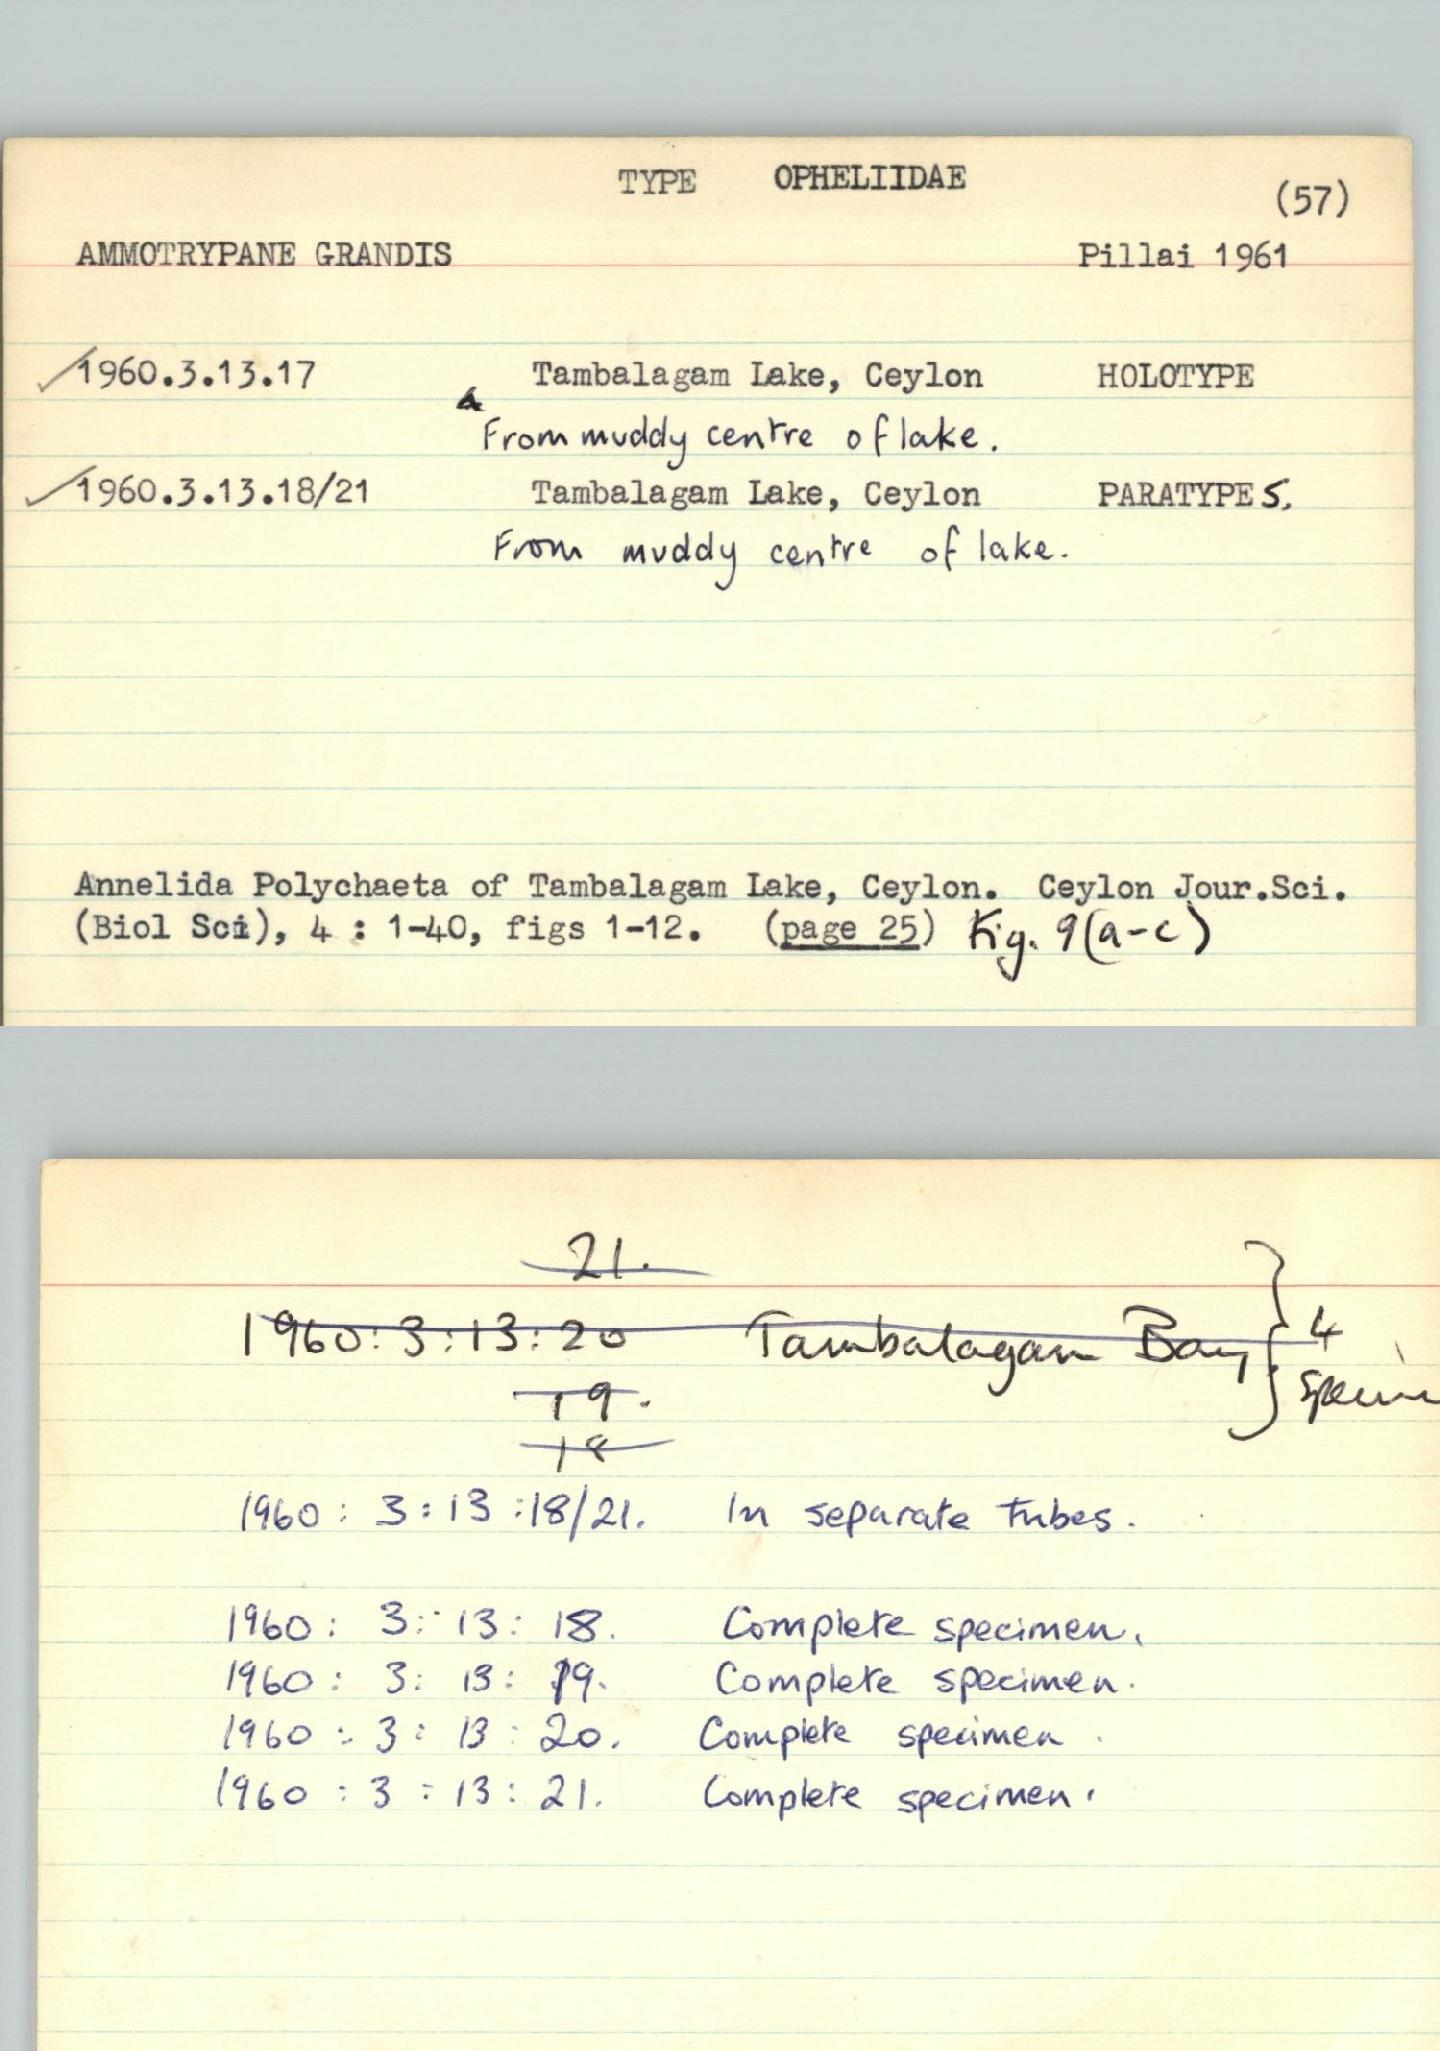 TYPE OPHELIIDAE
(57)
AMMOTRYPANE GRANDIS Pillai 1961
1960.3.13.17 Tambalagam Lake, Ceylon HOLOTYPE
From muddy centre of lake.
1960.3.13.18/21 Tambalagam Lake, Ceylon PARATYPES.
From muddy centre of lake.
Annelida Polychaeta of Tambalagam Lake, Ceylon. Ceylon Jour.Sci.
(Biol Sci), 4 : 1-40, figs 1-12. (page 25) Fig. 9(a-c)
21.
1960:3:13:20 Tambalagam Bay } 4
19.
18
1960: 3:13:18/21. In separate tubes.
1960: 3: 13: 18. Complete specimen.
1960: 3: 13: 19. Complete specimen.
1960: 3: 13: 20. Complete specimen.
1960: 3: 13: 21. Complete specimen.